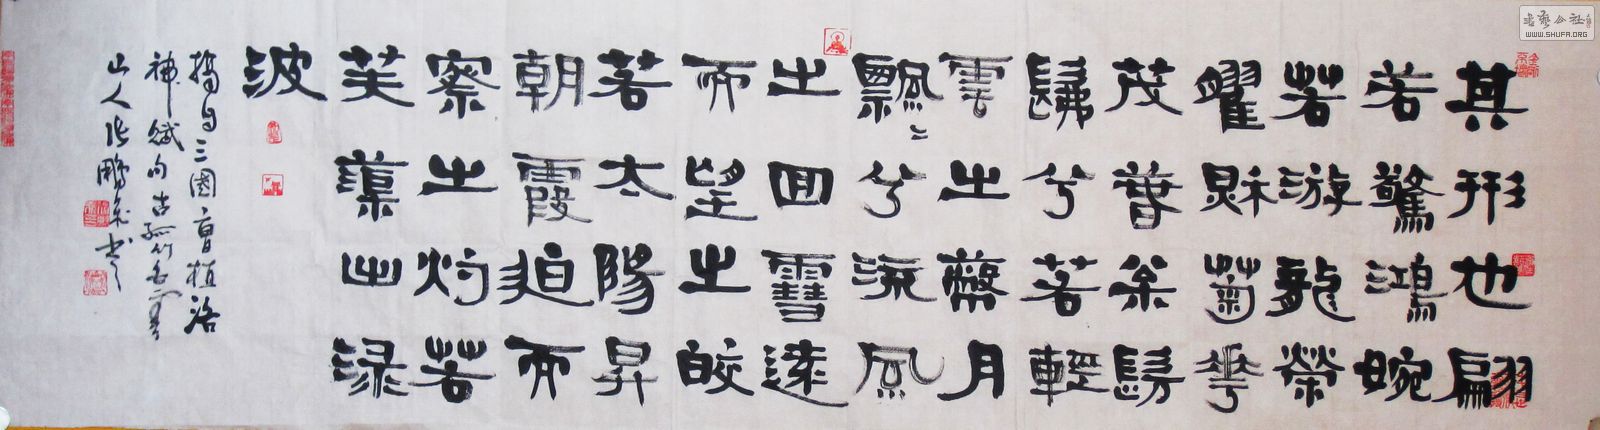 其形也翩
若驚鴻婉
若游龍榮
曜秋菊華
茂春松髣
髴兮若輕
雲之蔽月
飄〻兮流風
之回雪遠
而望之皎
若太陽昇
朝霞迫而
察之灼若
芙蕖出渌
波
摘自三國曹植洛
神賦句古孤竹
山人張鵬書
書藝公社
WWW.SHUFA.ORG